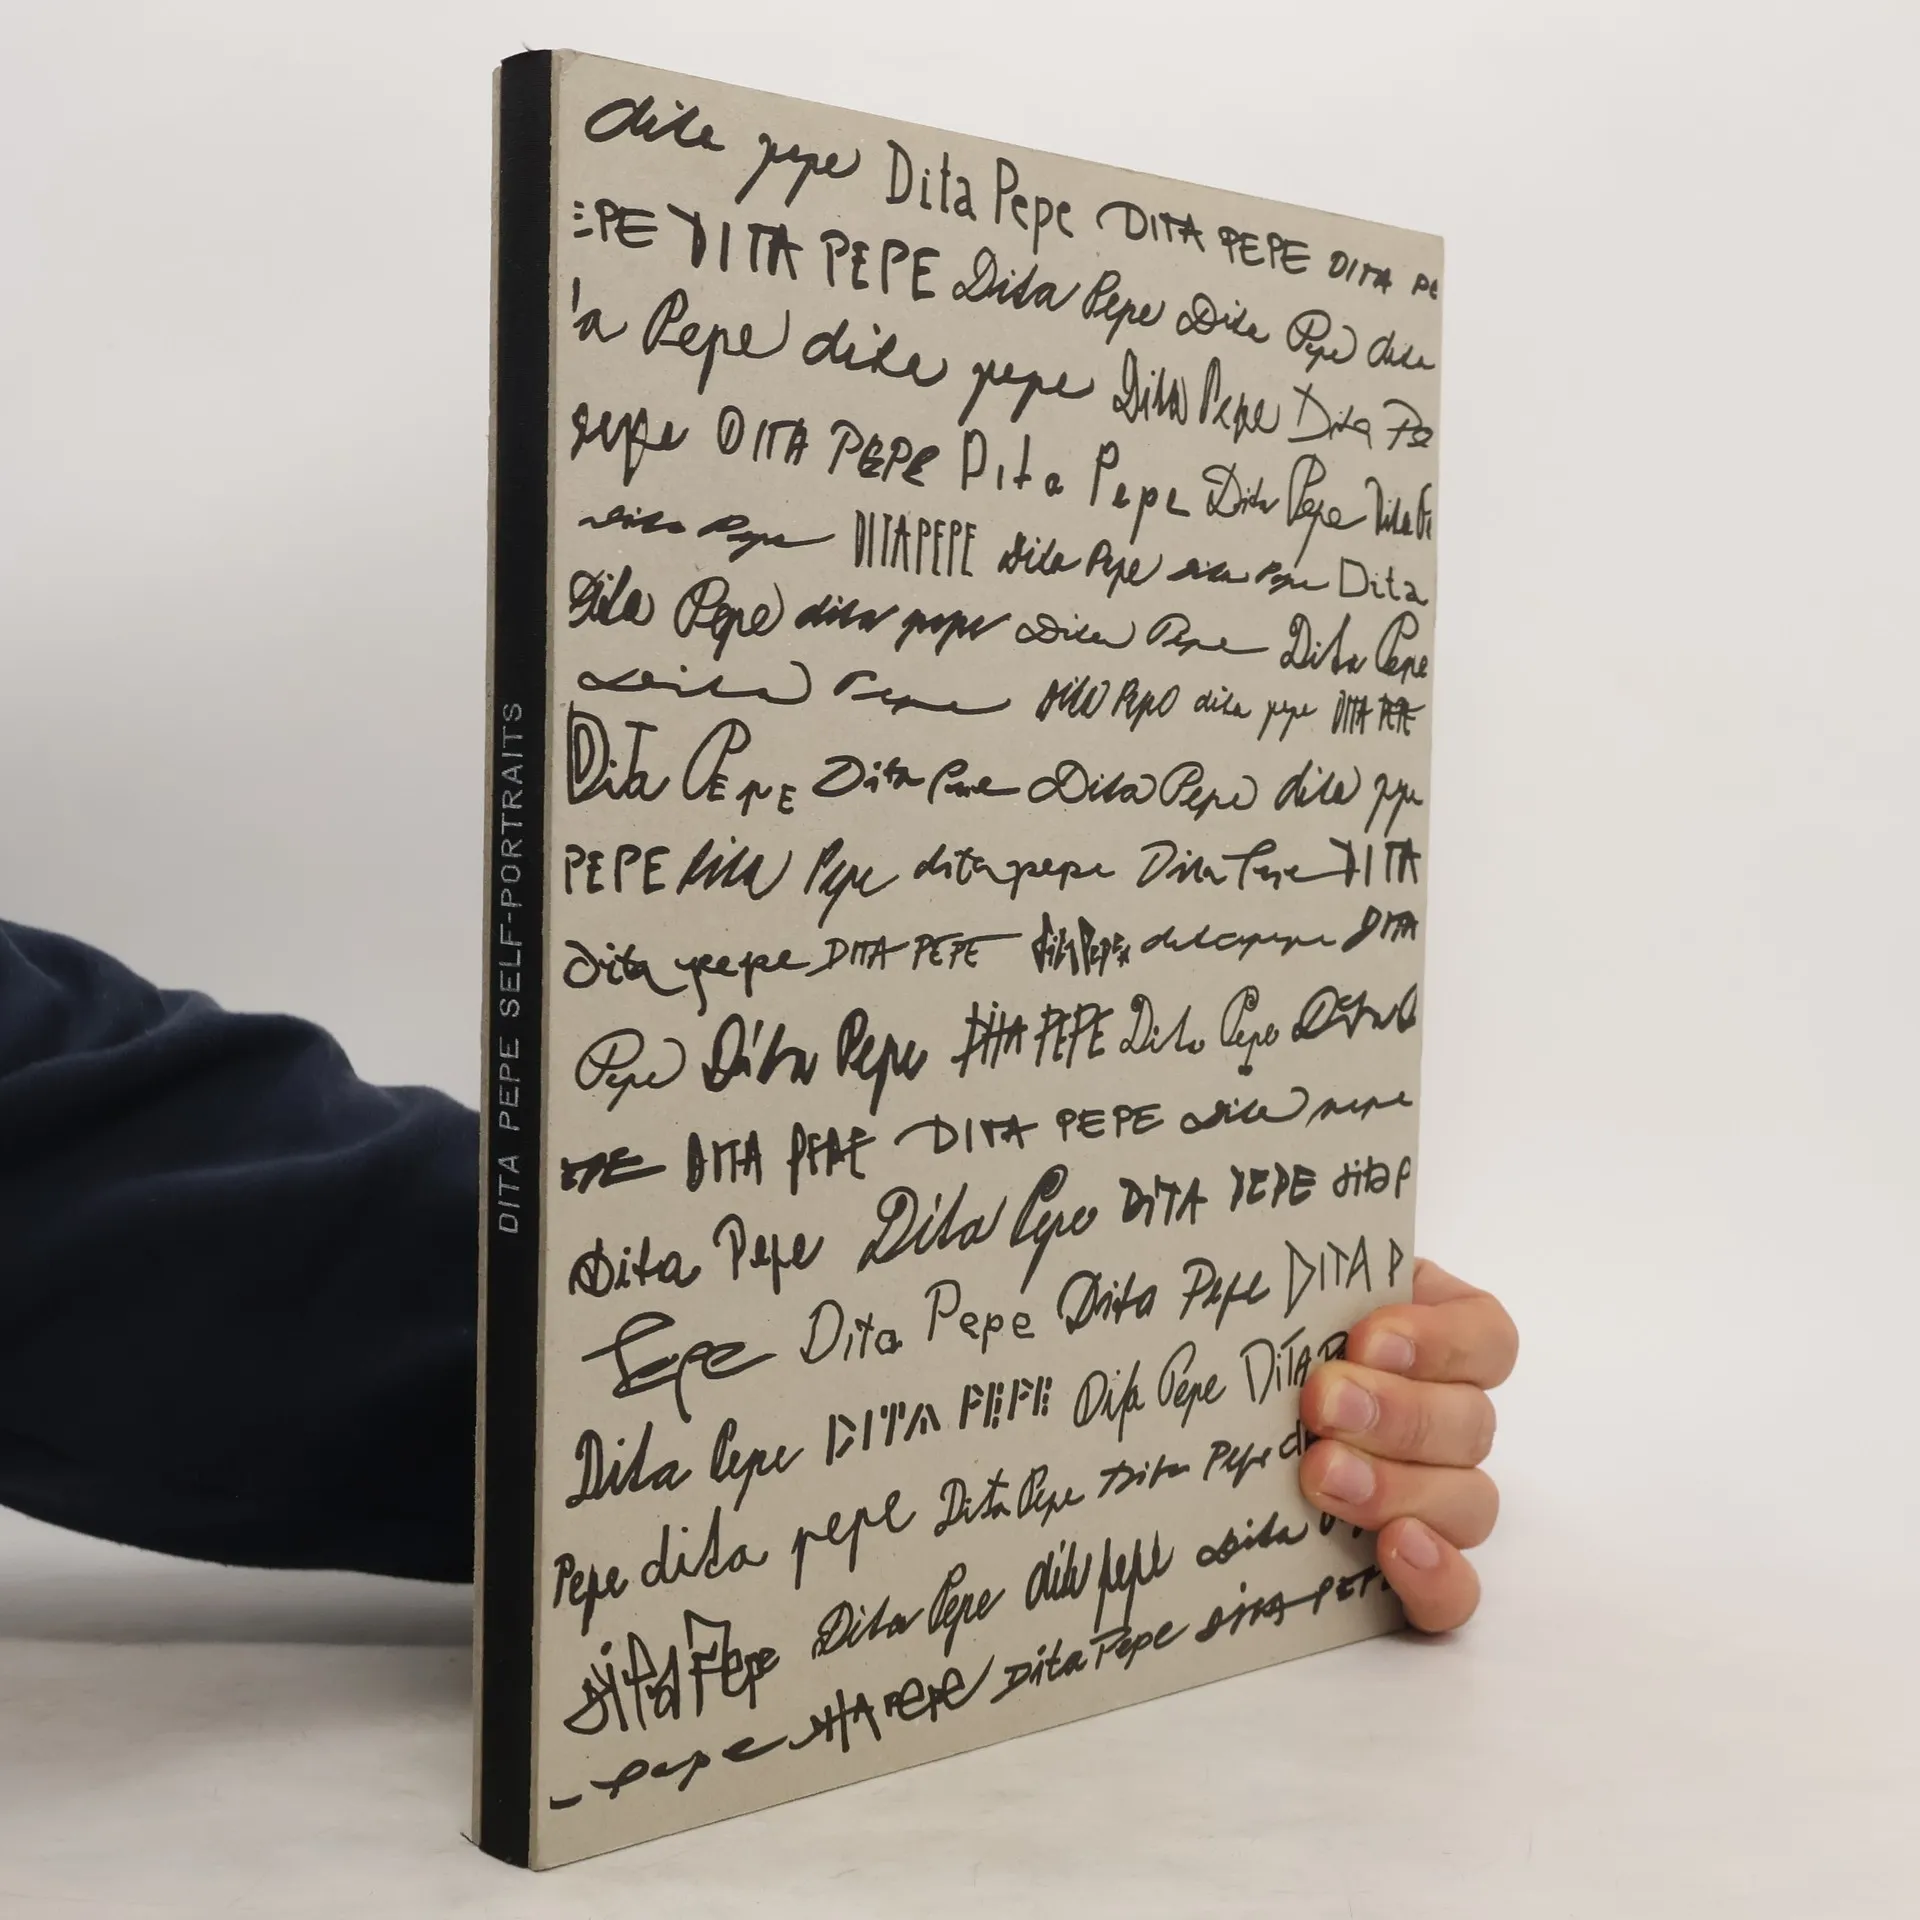 DITA PEPE SELF-PORTRAITS
dita pepe Dita Pepe DITA PEPE DITA PE
EPE DITA PEPE Dita Pepe Dita Pepe dita
a Pepe dita pepe Dita Pepe Dita Pe
pepe DITA PEPE Dita Pepe Dita Pepe Dita
Dita Pepe DITA PEPE Dita Pepe dita Pepe Dita
Dita Pepe dita pepe Dita Pepe Dita Pepe
Dita Pepe dita Pepe dita pepe DITA PEPE
DiTa PEPE Dita Pepe Dita Pepe dita pepe
PEPE dita Pepe dita pepe Dita Pepe DITA
dita pepe DITA PEPE dita Pepe dita pepe DITA
Pepe Dita Pepe DITA PEPE Dita Pepe Dita
PE DITA PEPE DITA PEPE dita pepe
Dita Pepe Dita Pepe DITA PEPE dita P
Pepe Dita Pepe Dita Pepe DITA P
Dita Pepe DITA PEPE Dita Pepe DiTA P
Pepe dita pepe Dita Pepe Dita Pepe d
Dita Pepe Dita Pepe dita pepe Dita
pepe DITA PEPE Dita Pepe DITA PEPE